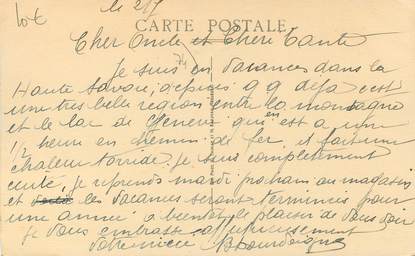 10€
le 21/7
CARTE POSTALE
Cher Oncle et Chère Tante
Je suis en vacances dans la
Haute Savoie, depuis 9 j déjà c'est
une très belle région entre la montagne
et le lac de Genève qui en est a une
1/2 heure en chemin de fer, il fait une
chaleur torride, je suis complètement
cuite, je reprends mardi prochain au magasin
et les vacances seront terminées pour
une année a bientôt le plaisir de vous voir
je vous embrasse affectueusement
votre nièce